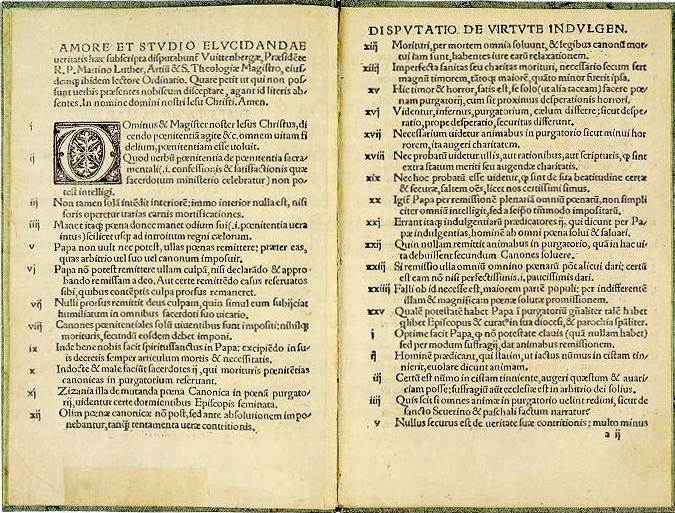 AMORE ET STVDIO ELVCIDANDAE
ueritatis hæc subscripta disputabunť Vuittenbergæ, Præsidēte
R. P. Martino Luther, Artiū & S. Theologiæ Magistro, eius,
demq; ibidem lectore Ordinatio. Quare petit ut qui non pos,
sunt verbis præsentes nobiscum disceptare, agant id literis ab,
sentes. In nomine domini nostri Iesu Christi. Amen.
i DOminus & Magister noster Iesus Christus, di
cendo pœnitentiā agite &c. omnem uitam fi
delium, pœnitentiam esse uoluit.
ij Quod uerbū pœnitentia de pœnitentia sacra
mentali (.i. confessionis & satisfactionis quæ
sacerdotum ministerio celebratur) non po,
test intelligi.
iij Non tamen solā intēdit interiorē; immo interior nulla est, nisi
foris operetur uarias carnis mortificationes.
iiij Manet itaq; pœna donec manet odium sui (.i. pœnitentia uera
intus) scilicet usq; ad introitum regni cælorum.
v Papa non uult nec potest, ullas pœnas remittere; præter eas,
quas arbitrio uel suo uel canonum imposuit.
vj Papa nō potest remittere ullam culpā, nisi declarādo & appro,
bando remissam a deo. Aut certe remittēdo casus reseruatos
sibi, quibus contēptis culpa prorsus remaneret.
vij Nulli prorsus remittit deus culpam, quin simul eum subijciat
humiliatum in omnibus sacerdoti suo uicario.
viij Canones pœnitentiales solū uiuentibus sunt impositi; nihilq;
morituris, secundū eosdem debet imponi.
ix Inde bene nobis facit spiritussanctus in Papa; excipiēdo in su,
is decretis semper articulum mortis & necessitatis.
x Indocte & male faciūt sacerdotes ij, qui morituris pœnitētias
canonicas in purgatorium reseruant.
xj Zizania illa de mutanda pœna Canonica in pœnā purgato,
rij, uidentur certe dormientibus Episcopis seminata.
xij Olim pœnæ canonicæ nō post, sed ante absolutionem impo,
nebantur, tanq̃ tentamenta ueræ contritionis.
DISPVTATIO DE VIRTVTE INDVLGEN.
xiij Morituri, per mortem omnia soluunt, & legibus canonū mor,
tui iam sunt, habentes iure earū relaxationem.
xiiij Imperfecta sanitas seu charitas morituri, necessario secum fert
magnū timorem, tātoq; maiorē, quāto minor fuerit ipsa.
xv Hic timor & horror, satis est, se solo (ut alia taceam) facere pœ,
nam purgatorij, cum sit proximus desperationis horrori.
xvj Videntur, infernus, purgatorium, cælum differre; sicut despe,
ratio, prope desperatio, securitas differunt.
xvij Necessarium uidetur animabus in purgatorio sicut minui hor,
rorem, ita augeri charitatem.
xviij Nec probatū uidetur ullis, aut rationibus, aut scripturis, q̃ sint
extra statum meriti seu augendæ charitatis.
xix Nec hoc probatū esse uidetur, q̃ sint de sua beatitudine certæ
& securæ, saltem oēs, licet nos certissimi simus.
xx Igit̃ Papa per remissionē plenariā omniū pœnarū, non simpli
citer omniū intelligit, sed a seipō tūmodo impositarū.
xxj Errant itaq; indulgentiarū prædicatores ij, qui dicunt per Pa,
pæ indulgentias, hominē ab omni pœna solui & saluari.
xxij Quin nullam remittit animabus in purgatorio, quā in hac ui,
ta debuissent secundum Canones soluere.
xxiij Si remissio ulla omniū omnino pœnarū pōt alicui dari; certū
est eam nō nisi perfectissimis .i. paucissimis dari.
xxiiij Falli ob id necesse est, maiorem partē populi; per indifferentē
illam & magnificam pœnæ solutæ promissionem.
xxv Qualē potestatē habet Papa ī purgatoriū gñaliter talē habet
q̃libet Episcopus & curat9 in sua diocesi, & parochia spāliter.
i Optime facit Papa, q̃ nō potestate clauis (quā nullam habet)
sed per modum suffragij, dat animabus remissionem.
ij Hominē prædicant, qui statim, ut iactus nūmus in cistam tin,
nierit, euolare dicunt animam.
iij Certū est nūmo in cistam tinniente, augeri quæstum & auari,
ciam posse; suffragiū aūt ecclesiæ est in arbitrio dei solius.
iiij Quis scit si omnes animæ in purgatorio uelint redimi, sicut de
sancto Seuerino & paschali factum narratur.
v Nullus securus est de ueritate suæ contritionis; multo minus
a ij